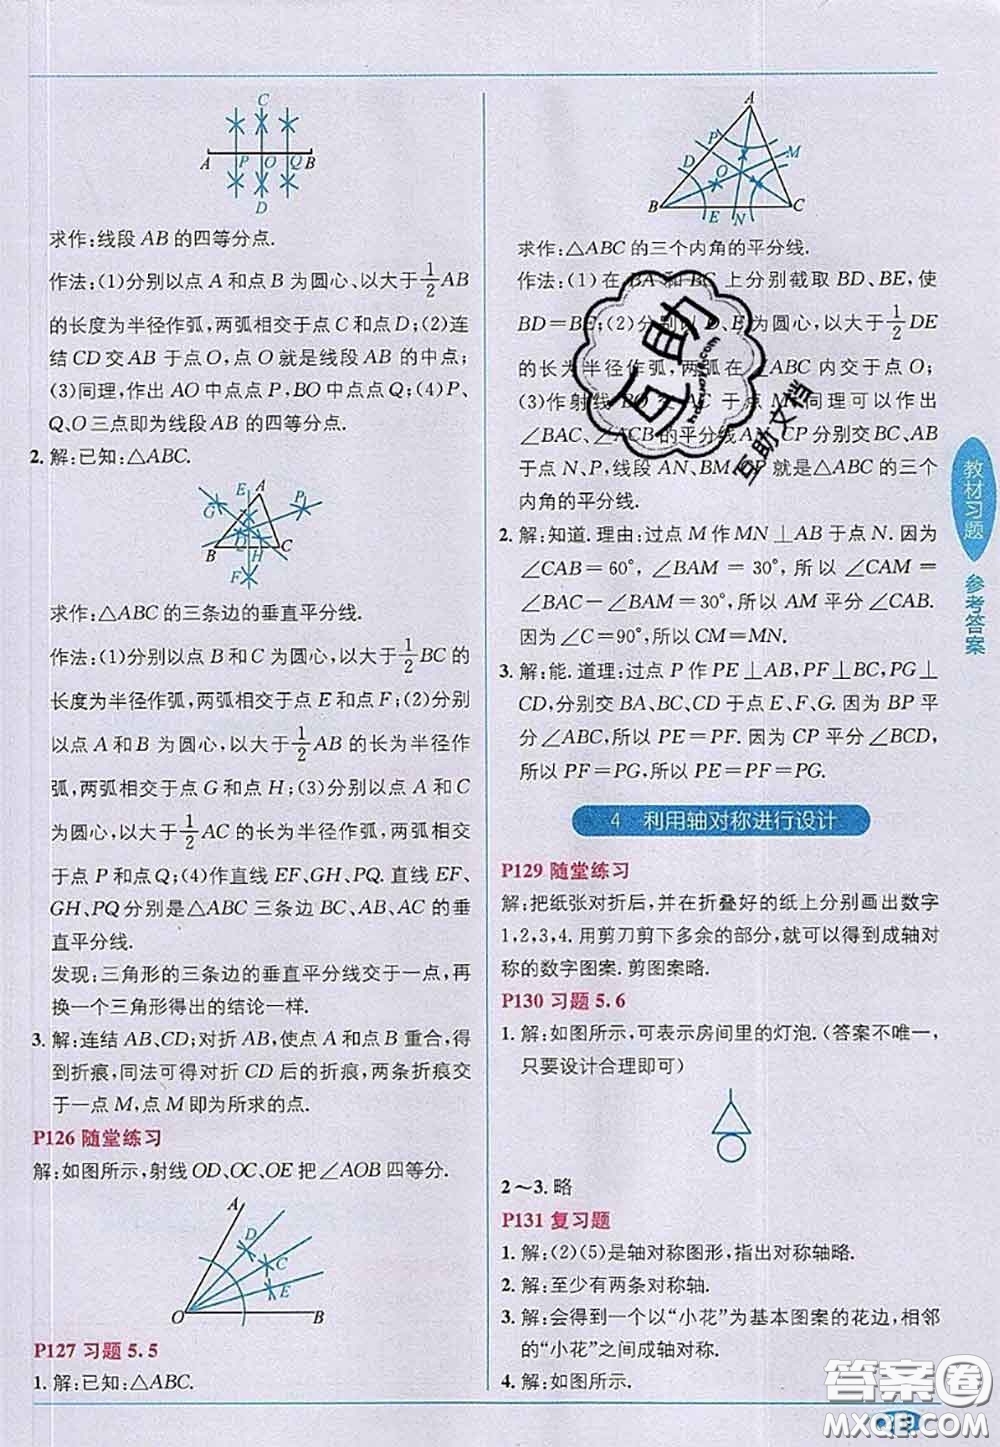 C
A P O Q B
D
求作:线段 AB 的四等分点.
作法:(1)分别以点 A 和点 B 为圆心,以大于1/2AB
的长度为半径作弧,两弧相交于点 C 和点 D;(2)连
结 CD 交 AB 于点 O,点 O 就是线段 AB 的中点;
(3)同理,作出 AO 中点点 P,BO 中点点 Q;(4)P、
Q、O 三点即为线段 AB 的四等分点.
2. 解:已知:△ABC.
E A P
G
B H C
F
求作:△ABC 的三条边的垂直平分线.
作法:(1)分别以点 B 和 C 为圆心,以大于1/2BC 的
长度为半径作弧,两弧相交于点 E 和点 F;(2)分别
以点 A 和 B 为圆心,以大于1/2AB 的长为半径作
弧,两弧相交于点 G 和点 H;(3)分别以点 A 和 C
为圆心,以大于1/2AC 的长为半径作弧,两弧相交
于点 P 和点 Q;(4)作直线 EF、GH、PQ. 直线 EF、
GH、PQ 分别是△ABC 三条边 BC、AB、AC 的垂
直平分线.
发现:三角形的三条边的垂直平分线交于一点,再
换一个三角形得出的结论一样.
3. 解:连结 AB、CD;对折 AB,使点 A 和点 B 重合,得
到折痕,同法可得对折 CD 后的折痕,两条折痕交
于一点 M,点 M 即为所求的点.
P126 随堂练习
解:如图所示,射线 OD、OC、OE 把∠AOB 四等分.
A
D
C
E
O B
P127 习题 5.5
1. 解:已知:△ABC.
A
P M
D
O
B E N C
求作:△ABC 的三个内角的平分线.
作法:(1)在 BA 和 BC 上分别截取 BD、BE,使
BD=BE;(2)分别以 D、E 为圆心,以大于1/2DE
的长为半径作弧,两弧在∠ABC 内交于点 O;
(3)作射线 BO 交 AC 于点 M;同理可以作出
∠BAC、∠ACB 的平分线 AN、CP 分别交 BC、AB
于点 N、P,线段 AN、BM、CP 就是△ABC 的三个
内角的平分线.
2. 解:知道. 理由:过点 M 作 MN⊥AB 于点 N. 因为
∠CAB=60°,∠BAM=30°,所以∠CAM=
∠BAC-∠BAM=30°,所以 AM 平分∠CAB.
因为∠C=90°,所以 CM=MN.
3. 解:能. 道理:过点 P 作 PE⊥AB,PF⊥BC,PG⊥
CD,分别交 BA、BC、CD 于点 E、F、G. 因为 BP 平
分∠ABC,所以 PE=PF. 因为 CP 平分∠BCD,
所以 PF=PG,所以 PE=PF=PG.
4 利用轴对称进行设计
P129 随堂练习
解:把纸张对折后,并在折叠好的纸上分别画出数字
1,2,3,4. 用剪刀剪下多余的部分,就可以得到成轴对
称的数字图案. 剪图案略.
P130 习题 5.6
1. 解:如图所示,可表示房间里的灯泡.(答案不唯一,
只要设计合理即可)
2~3. 略
P131 复习题
1. 解:(2)(5)是轴对称图形,指出对称轴略.
2. 解:至少有两条对称轴.
3. 解:会得到一个以“小花”为基本图案的花边,相邻
的“小花”之间成轴对称.
4. 解:如图所示.
教材习题
参考答案
互助
互助文档
答案圈
MXQE.COM